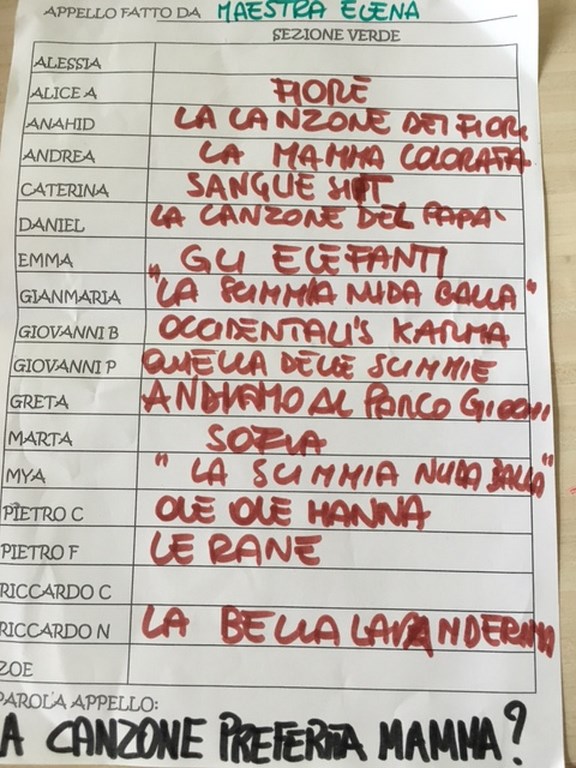 APPELLO FATTO DA MAESTRA ELENA
SEZIONE VERDE
ALESSIA
ALICE A FIORE
ANAHID LA CANZONE DEI FIORI
ANDREA LA MAMMA COLORATA
CATERINA SANGUE SHOT
DANIEL LA CANZONE DEL PAPA'
EMMA GLI ELEFANTI
GIANMARIA "LA SCIMMIA NUDA BALLA"
GIOVANNI B OCCIDENTALI'S KARMA
GIOVANNI P QUELLA DELLE SCIMMIE
GRETA ANDIAMO AL PARCO GIOCHI
MARTA SOFIA
MYA "LA SCIMMIA NUDA BALLA"
PIETRO C OLE OLE HANNA
PIETRO F LE RANE
RICCARDO C
RICCARDO N LA BELLA LAVANDERINA
ZOE
PAROLA APPELLO:
A CANZONE PREFERITA MAMMA?